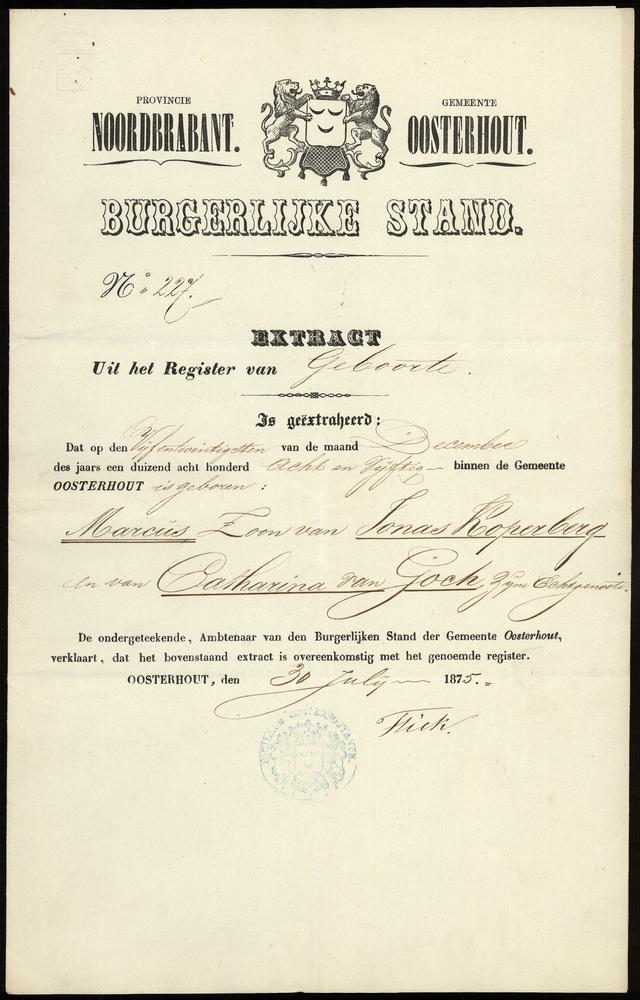 PROVINCIE
NOORDBRABANT.
GEMEENTE
OOSTERHOUT.
BURGERLIJKE STAND.
No 227.
EXTRACT
Uit het Register van Geboorte.
Is geëxtraheerd:
Dat op den Vijfentwintigsten van de maand December
des jaars een duizend acht honderd Acht en Vijftig binnen de Gemeente
OOSTERHOUT is geboren:
Marcus Zoon van Jonas Koperberg
en van Catharina van Goch Zijne Echtgenoote.
De ondergeteekende, Ambtenaar van den Burgerlijken Stand der Gemeente Oosterhout,
verklaart, dat het bovenstaand extract is overeenkomstig met het genoemde register.
OOSTERHOUT, den 30 July 1875.